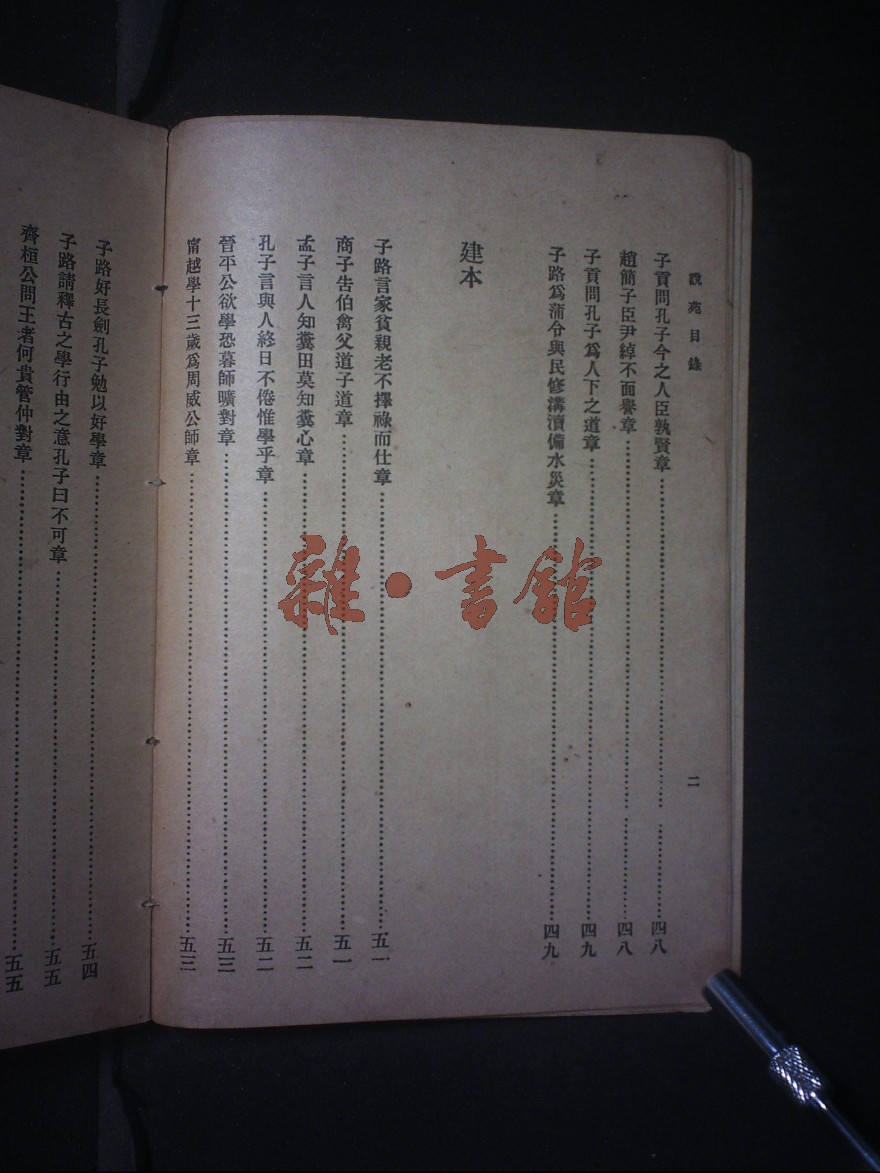 說苑目錄
二
子貢問孔子今之人臣孰賢章⋯⋯四八
趙簡子臣尹綽不面譽章⋯⋯四八
子貢問孔子為人下之道章⋯⋯四九
子路為蒲令與民修溝瀆備水災章⋯⋯四九
建本
子路言家貧親老不擇祿而仕章⋯⋯五一
商子告伯禽父道子道章⋯⋯五一
孟子言人知糞田莫知糞心章⋯⋯五二
孔子言與人終日不倦惟學乎章⋯⋯五二
晉平公欲學恐暮師曠對章⋯⋯五三
甯越學十三歲為周威公師章⋯⋯五三
子路好長劍孔子勉以好學章⋯⋯五四
子路請釋古之學行由之意孔子曰不可章⋯⋯五五
齊桓公問王者何貴管仲對章⋯⋯五五
雜·書館